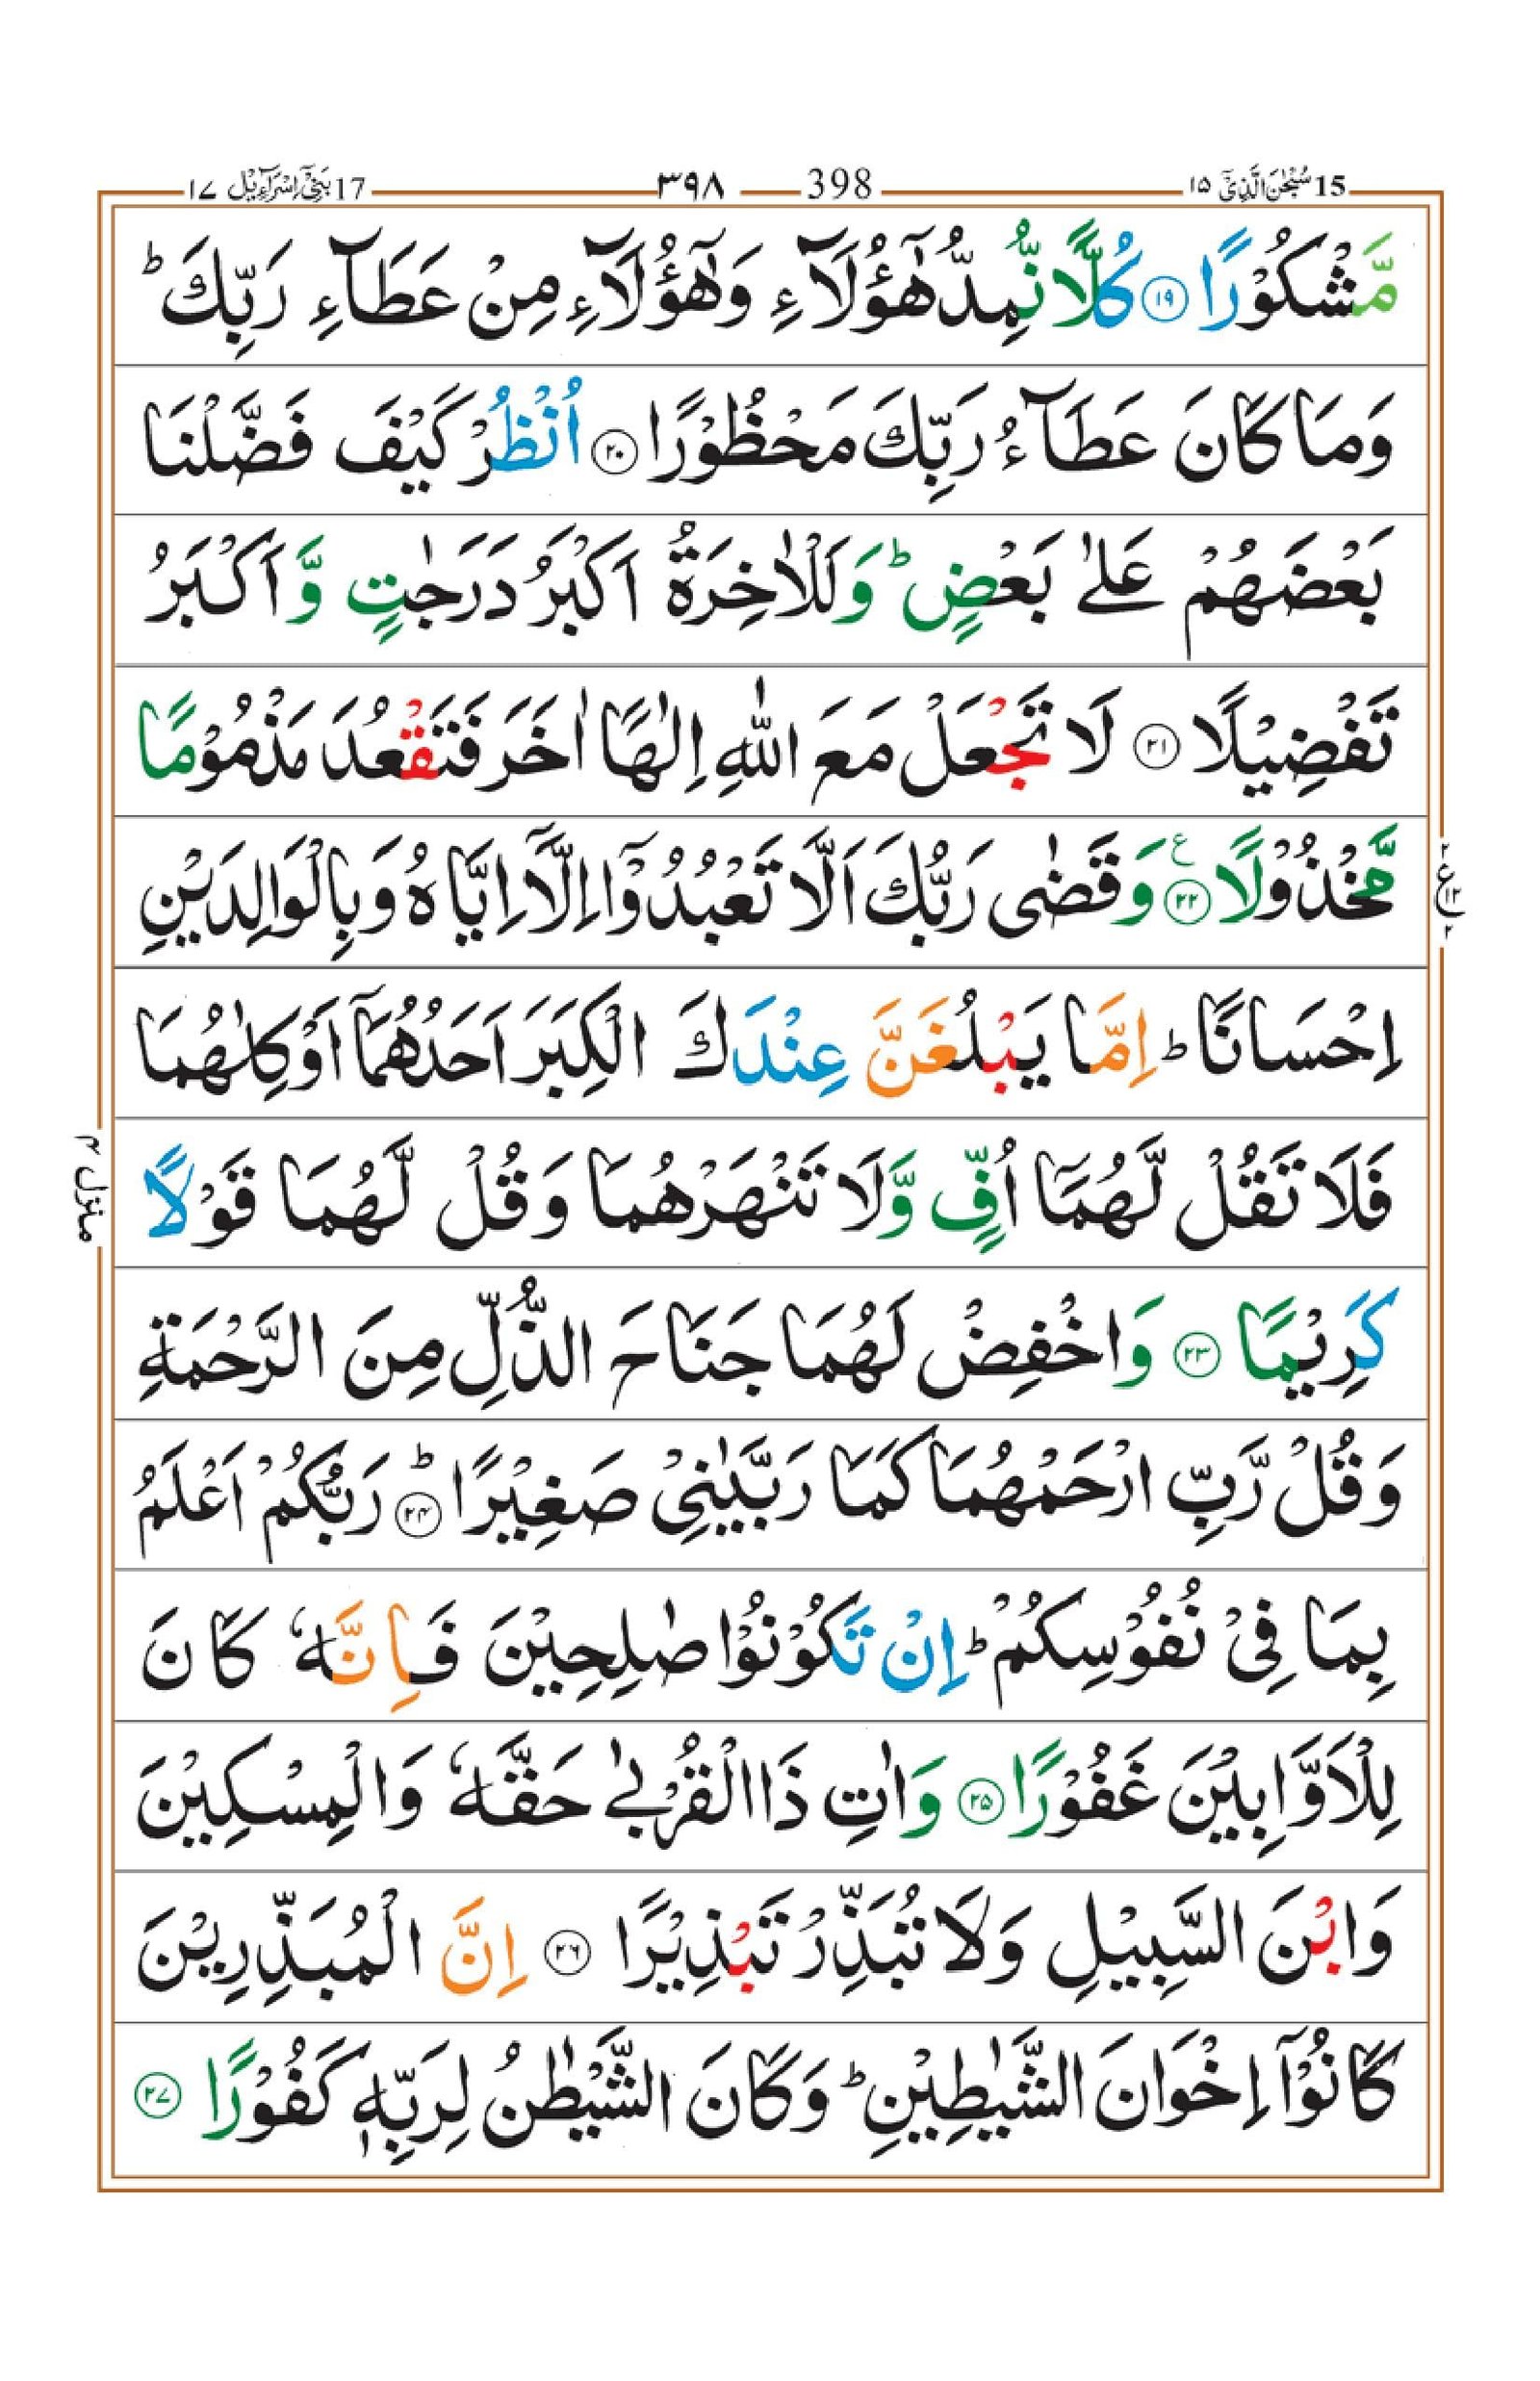 15 سُبْحٰنَ الَّذِيْٓ ١٥ 398 ٣٩٨ 17 بَنِيْٓ اِسْرَآءِيْل ١٧
مَّشْكُوْرًا ۝١٩ كُلًّا نُّمِدُّ هٰٓؤُلَآءِ وَهٰٓؤُلَآءِ مِنْ عَطَآءِ رَبِّكَ ؕ
وَمَا كَانَ عَطَآءُ رَبِّكَ مَحْظُوْرًا ۝٢٠ اُنْظُرْ كَيْفَ فَضَّلْنَا
بَعْضَهُمْ عَلٰى بَعْضٍ ؕ وَلَلْاٰخِرَةُ اَكْبَرُ دَرَجٰتٍ وَّ اَكْبَرُ
تَفْضِيْلًا ۝٢١ لَا تَجْعَلْ مَعَ اللّٰهِ اِلٰهًا اٰخَرَ فَتَقْعُدَ مَذْمُوْمًا
مَّخْذُوْلًا ۝٢٢ ع وَقَضٰى رَبُّكَ اَلَّا تَعْبُدُوْٓا اِلَّآ اِيَّاهُ وَبِالْوَالِدَيْنِ
٢ ع ١٢ ٢
اِحْسَانًا ؕ اِمَّا يَبْلُغَنَّ عِنْدَكَ الْكِبَرَ اَحَدُهُمَآ اَوْ كِلٰهُمَا
فَلَا تَقُلْ لَّهُمَآ اُفٍّ وَّلَا تَنْهَرْهُمَا وَقُلْ لَّهُمَا قَوْلًا
منزل ٤
كَرِيْمًا ۝٢٣ وَاخْفِضْ لَهُمَا جَنَاحَ الذُّلِّ مِنَ الرَّحْمَةِ
وَقُلْ رَّبِّ ارْحَمْهُمَا كَمَا رَبَّيٰنِيْ صَغِيْرًا ؕ ۝٢٤ رَبُّكُمْ اَعْلَمُ
بِمَا فِيْ نُفُوْسِكُمْ ؕ اِنْ تَكُوْنُوْا صٰلِحِيْنَ فَاِنَّهٗ كَانَ
لِلْاَوَّابِيْنَ غَفُوْرًا ۝٢٥ وَاٰتِ ذَا الْقُرْبٰى حَقَّهٗ وَالْمِسْكِيْنَ
وَابْنَ السَّبِيْلِ وَلَا تُبَذِّرْ تَبْذِيْرًا ۝٢٦ اِنَّ الْمُبَذِّرِيْنَ
كَانُوْٓا اِخْوَانَ الشَّيٰطِيْنِ ؕ وَكَانَ الشَّيْطٰنُ لِرَبِّهٖ كَفُوْرًا ۝٢٧